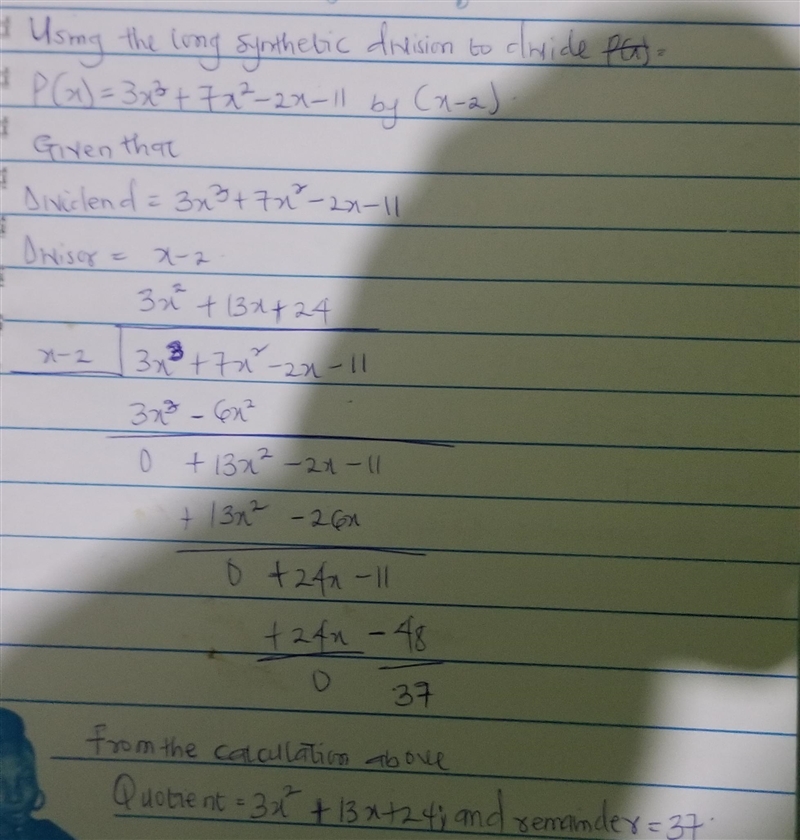 Using the long synthetic division to divide P(x) =
P(x) = 3x³ + 7x² - 2x - 11 by (x-2).
Given that
Dividend = 3x³ + 7x² - 2x - 11
Divisor = x-2
3x² + 13x + 24
x-2 3x³ + 7x² - 2x - 11
3x³ - 6x²
0 + 13x² - 2x - 11
+ 13x² - 26x
0 + 24x - 11
+ 24x - 48
0 37
From the calculation above
Quotient = 3x² + 13x + 24; and remainder = 37.